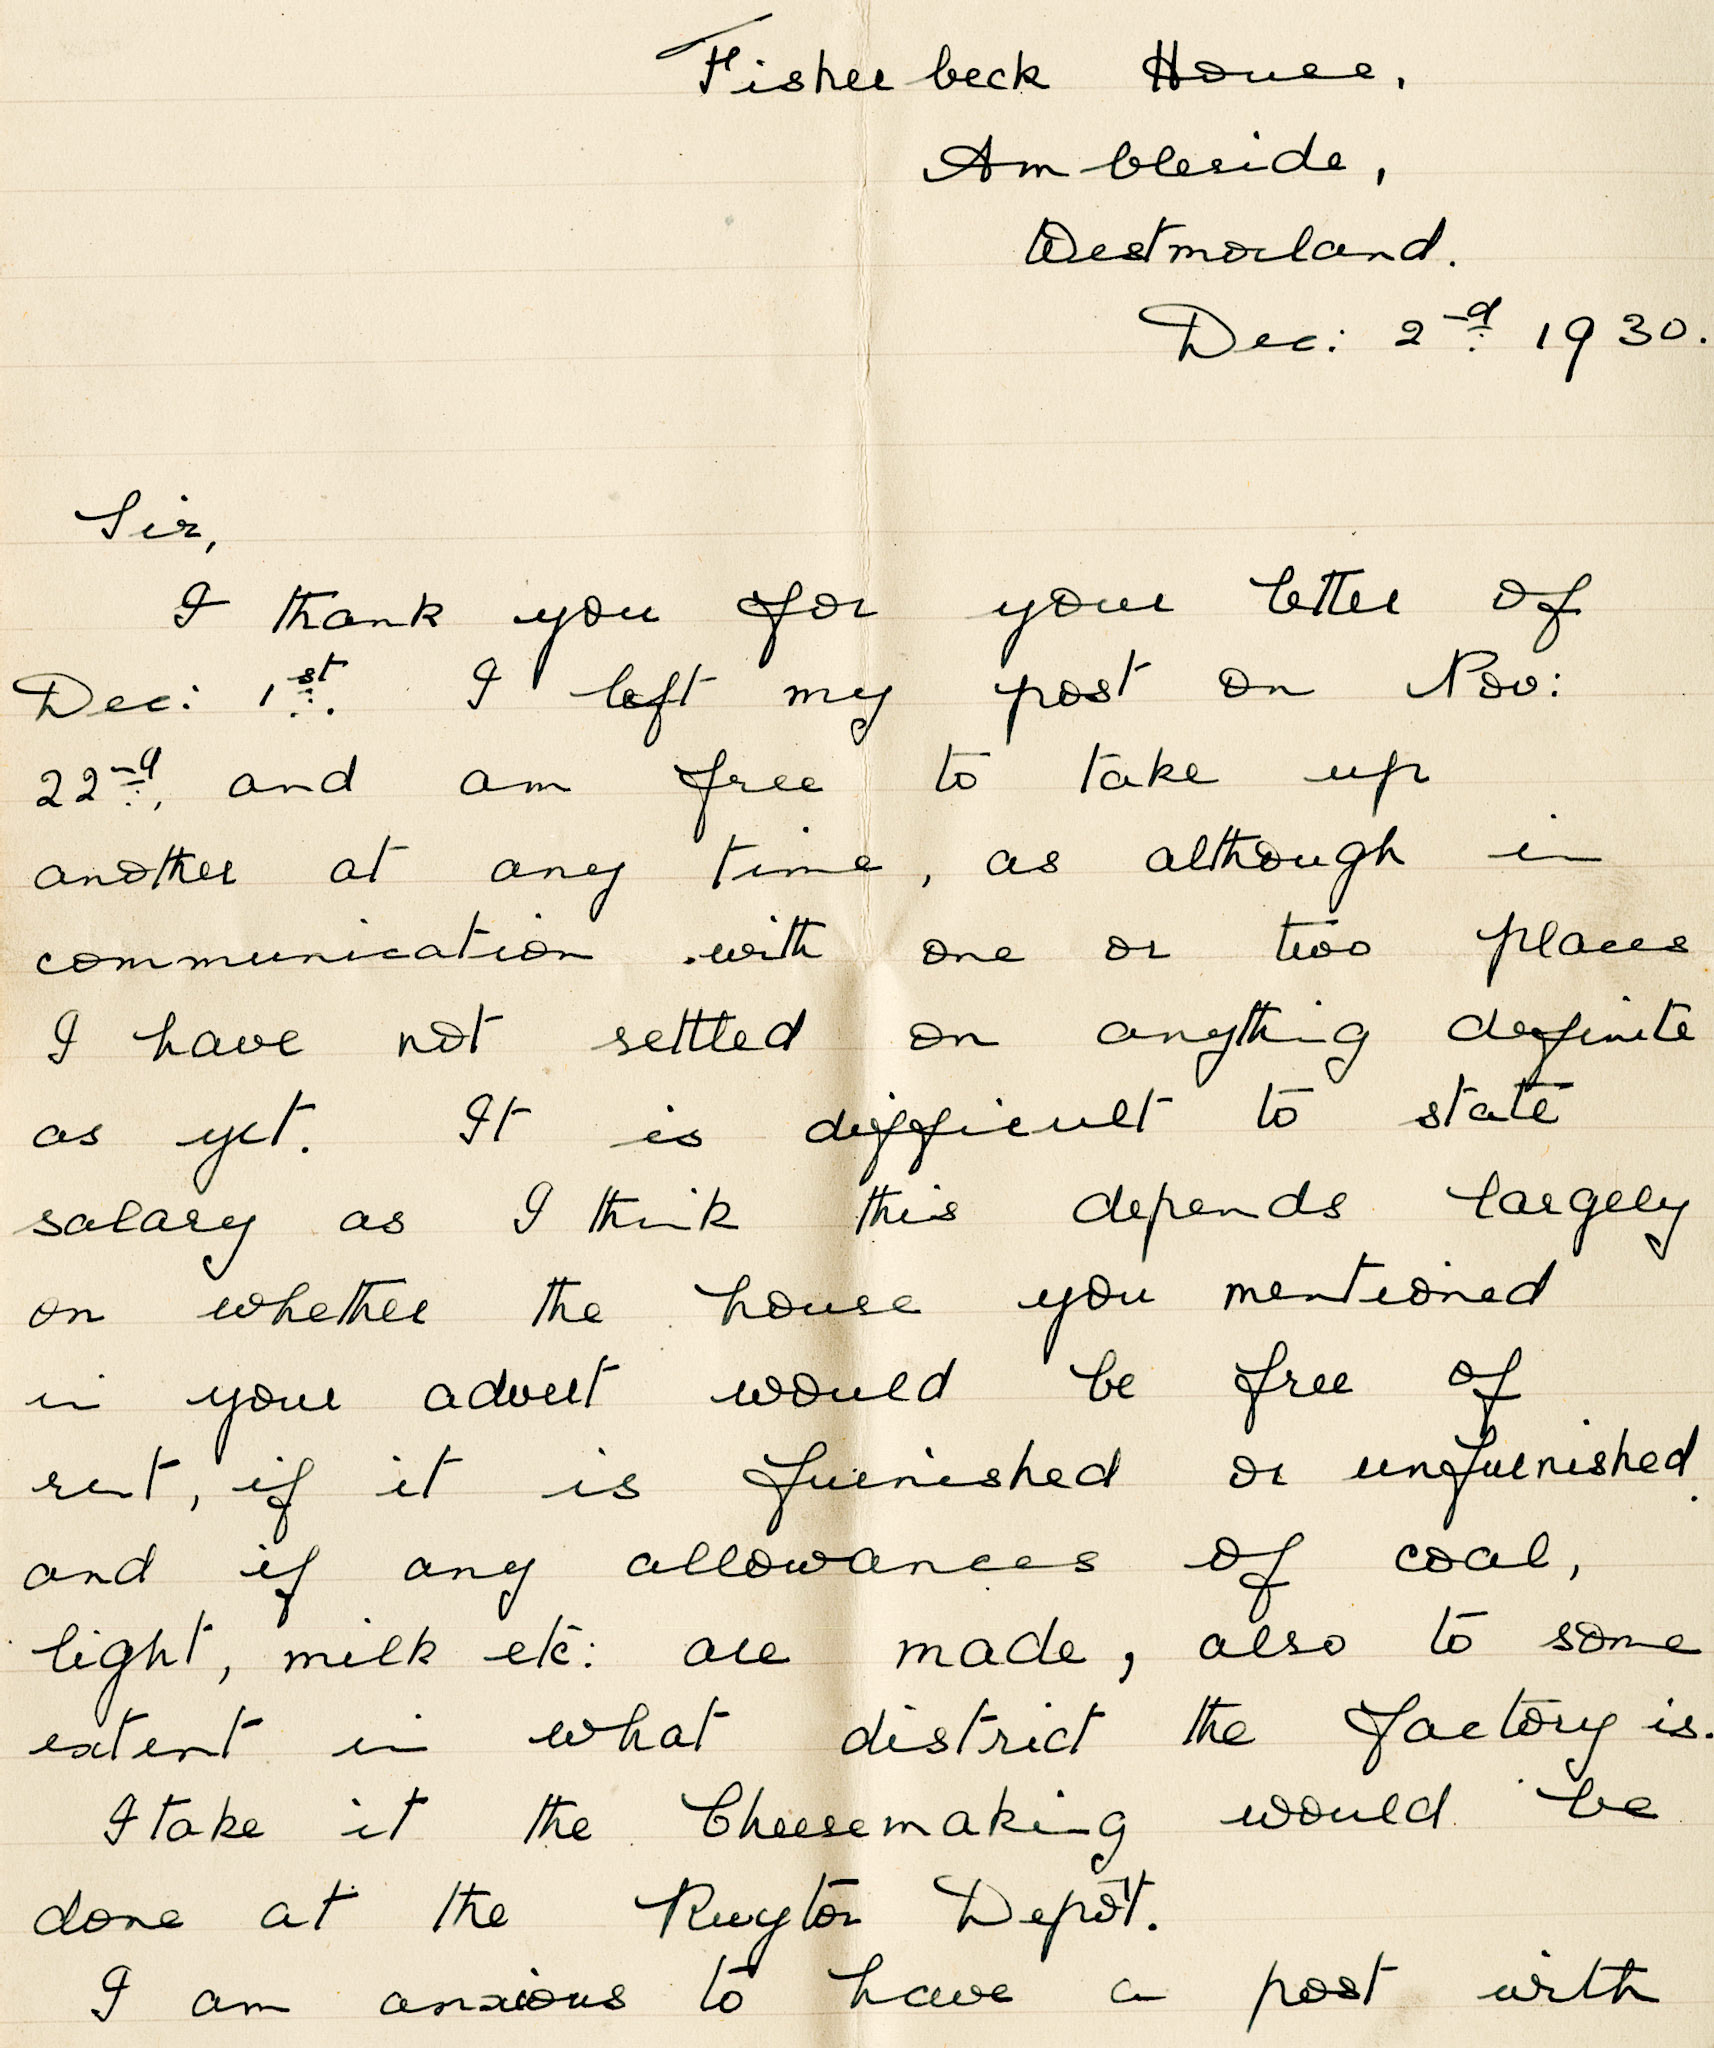 Fisher beck House,
Ambleside,
Westmorland.
Dec: 2nd 1930.
Sir,
I thank you for your letter of
Dec: 1st. I left my post on Nov:
22nd, and am free to take up
another at any time, as although in
communication with one or two places
I have not settled on anything definite
as yet. It is difficult to state
salary as I think this depends largely
on whether the house you mentioned
in your advert would be free of
rent, if it is furnished or unfurnished.
and if any allowances of coal,
light, milk etc: are made, also to some
extent in what district the factory is.
I take it the Cheesemaking would be
done at the Ruyton Depôt.
I am anxious to have a post with